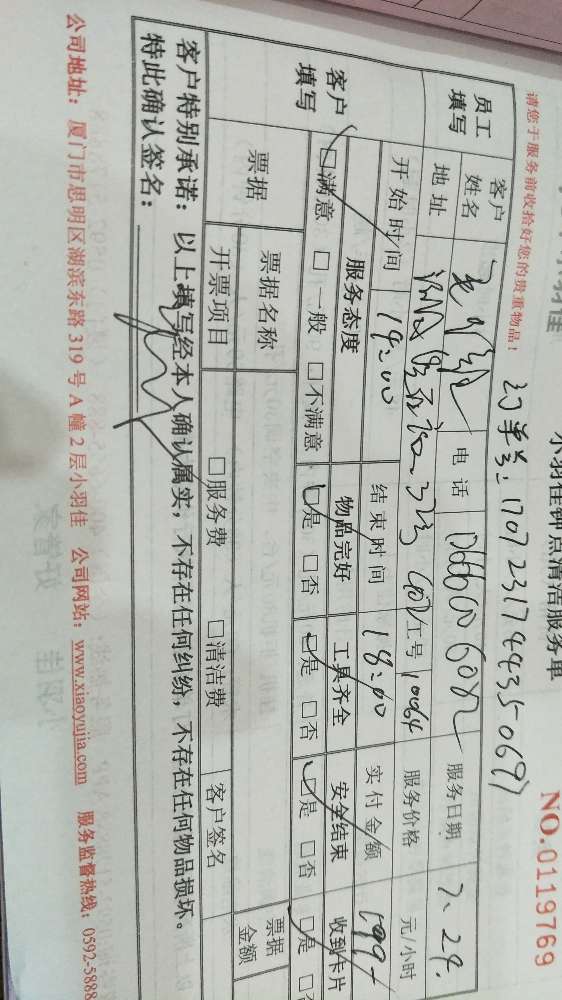 小羽佳钟点清洁服务单
NO.0119769
请您于服务前收拾好您的贵重物品!
订单号: 170723174435-0697
员工填写 客户姓名 电话 服务日期 7.24.
地址 工号 10064 服务价格 元/小时
客户填写 开始时间 14:00 结束时间 18:00 实付金额 199
服务态度 物品完好 工具齐全 安全结束 收到卡片
☑满意 □一般 □不满意 ☑是 □否 ☑是 □否 ☑是 □否 ☑是 □否
票据 票据名称 □服务费 □清洁费 客户签名 票据金额
开票项目
客户特别承诺: 以上填写经本人确认属实,不存在任何纠纷,不存在任何物品损坏。
特此确认签名:
公司地址: 厦门市思明区湖滨东路 319 号 A 幢 2 层小羽佳 公司网站: www.xiaoyujia.com 服务监督热线: 0592-5888